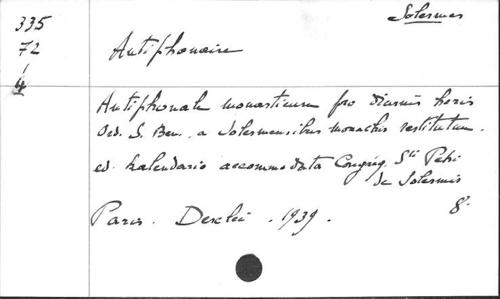 Solesmes
335
72
4
Antiphonaire
Antiphonale monasticum pro diurnis horis
Ord. S. Ben. a Solesmensibus monachis restitutum.
ed. kalendario accommodata Congreg. Sti Petri
de Solesmis
Paris. Desclée. 1939. 8°